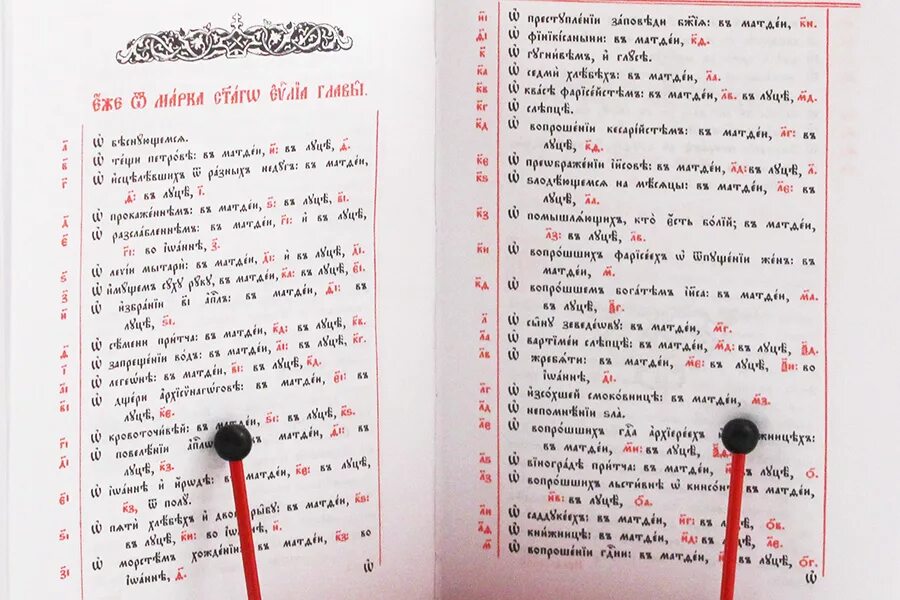 є҆́же ѿ ма́рка ст҃а́гѡ є҆ѵⷢ҇лїа главы̑.
а҃ ѽ бѣсну́ющемсѧ.
в҃ ѽ те́щи петро́вѣ: въ матѳе́и, и҃: въ лꙋцѣ̀, д҃.
г҃ ѽ и҆сцѣлѣ́вшихъ ѿ ра́зныхъ недꙋ́гъ: въ матѳе́и,
ѳ҃: въ лꙋцѣ̀, і҃.
д҃ ѽ прокаже́ннѣмъ: въ матѳе́и, ѕ҃: въ лꙋцѣ̀, в҃і.
є҃ ѽ разсла́бленнѣмъ: въ матѳе́и, г҃і: и҆ въ лꙋцѣ̀,
г҃і: во і҆ѡа́ннѣ, з҃.
ѕ҃ ѽ леѵі́и мытари̑: въ матѳе́и, д҃і: и҆ въ лꙋцѣ̀, д҃і.
з҃ ѽ и҆мꙋ́щемъ сꙋ́хꙋ рꙋ́кꙋ, въ матѳе́и, к҃а: въ лꙋцѣ̀, є҃і.
и҃ ѽ и҆збра́нїи в҃і а҆пⷭ҇лъ: въ матѳе́и, ѳ҃і: въ
лꙋцѣ̀, ѕ҃і.
ѳ҃ ѽ сѣ́мени при́тча: въ матѳе́и, к҃д: въ лꙋцѣ̀, к҃в.
і҃ ѽ запреще́нїи во́дъ: въ матѳе́и, а҃і: въ лꙋцѣ̀, к҃г.
а҃і ѽ легеѡ́нѣ: въ матѳе́и, в҃і: въ лꙋцѣ̀, к҃д.
в҃і ѽ дще́ри а҆рхїсѷнагѡ́говѣ: въ матѳе́и, є҃і: въ
лꙋцѣ̀, к҃є.
г҃і ѽ кровоточи́вѣй: въ матѳе́и, ѕ҃і: въ лꙋцѣ̀, к҃ѕ.
д҃і ѽ повелѣ́нїи въ матѳе́и, ѳ҃і: въ
лꙋцѣ̀, к҃з.
є҃і ѽ і҆ѡа́ннѣ и҆ и҆́рѡдѣ: въ матѳе́и, к҃є: въ лꙋцѣ̀,
к҃з, ѿ полꙋ̀.
ѕ҃і ѽ пѧтѝ хлѣ́бѣхъ и҆ двою̀ ры̑бꙋ: въ матѳе́и, к҃в:
въ лꙋцѣ̀, к҃и: во і҆ѡа́ннѣ, и҃.
з҃і ѽ морстѣ́мъ хожде́нїи: въ матѳе́и, к҃з: во
і҆ѡа́ннѣ, ѳ҃.
ѽ
и҃і ѽ преступле́нїи за́повѣди бж҃їѧ: въ матѳе́и, к҃и.
ѳ҃і ѽ фїнїкі́саныни: въ матѳе́и, к҃ѳ.
к҃ ѽ гꙋгни́вѣмъ, и҆ глꙋ́сѣ.
к҃а ѽ седмѝ хлѣ́бѣхъ: въ матѳе́и, л҃а.
к҃в ѽ ква́сѣ фарїсе́йстѣмъ: въ матѳе́и, л҃в. въ лꙋцѣ̀, м҃д.
к҃г ѽ слѣпцѣ̀.
к҃д ѽ вопроше́нїи кеса́рїйстѣмъ: въ матѳе́и, л҃г: въ
лꙋцѣ̀, к҃ѳ.
к҃є ѽ преѡбраже́нїи і҆и҃совѣ: въ матѳе́и, л҃д: въ лꙋцѣ̀, л҃.
к҃ѕ ѽ ѕлодѣ́ющемсѧ на мⷭ҇ѣсѧцы: въ матѳе́и, л҃є: въ
лꙋцѣ̀, л҃а.
к҃з ѽ помышлѧ́ющихъ, кто̀ є҆́сть бо́лїй; въ матѳе́и,
л҃з: въ лꙋцѣ̀, л҃в.
к҃и ѽ вопро́шшихъ фарїсе́ехъ ѡ҆ ѿпꙋще́нїи же́нъ: въ
матѳе́и, м҃.
к҃ѳ ѽ вопро́шшемъ бога́тѣмъ і҆и҃са: въ матѳе́и, м҃а.
въ лꙋцѣ̀, ѯ҃г.
л҃ ѽ сы̑нꙋ зеведе́ѡвꙋ: въ матѳе́и, м҃г.
л҃а ѽ вартїме́и слѣпцѣ̀: въ матѳе́и, м҃д: въ лꙋцѣ̀, ѯ҃д.
л҃в ѽ жребѧ́ти: въ матѳе́и, м҃є: въ лꙋцѣ̀, ѯ҃и: во
і҆ѡа́ннѣ, д҃і.
л҃г ѽ и҆зсо́хшей смоко́вницѣ: въ матѳе́и, м҃з.
л҃д ѽ непомнѣ́нїи ѕла̀.
л҃є ѽ вопро́шшихъ гдⷭ҇а а҆рхїере́ехъ и҆ кни́жницѣхъ:
въ матѳе́и, м҃и: въ лꙋцѣ̀, ѯ҃ѳ.
л҃ѕ ѽ вїногра́дѣ при́тча: въ матѳе́и, въ лꙋцѣ̀, о҃.
л҃з ѽ вопро́шшихъ льсти́внѣ ѡ҆ кинсо́нѣ: въ матѳе́и,
н҃в: въ лꙋцѣ̀, о҃а.
л҃и ѽ саддꙋке́ехъ: въ матѳе́и, н҃г: въ лꙋцѣ̀, о҃в.
л҃ѳ ѽ кни́жницѣ: въ матѳе́и, н҃д: въ лꙋцѣ̀, л҃є.
м҃ ѽ вопроше́нїи гдⷭ҇ни: въ матѳе́и, въ лꙋцѣ̀, о҃г.
ѽ